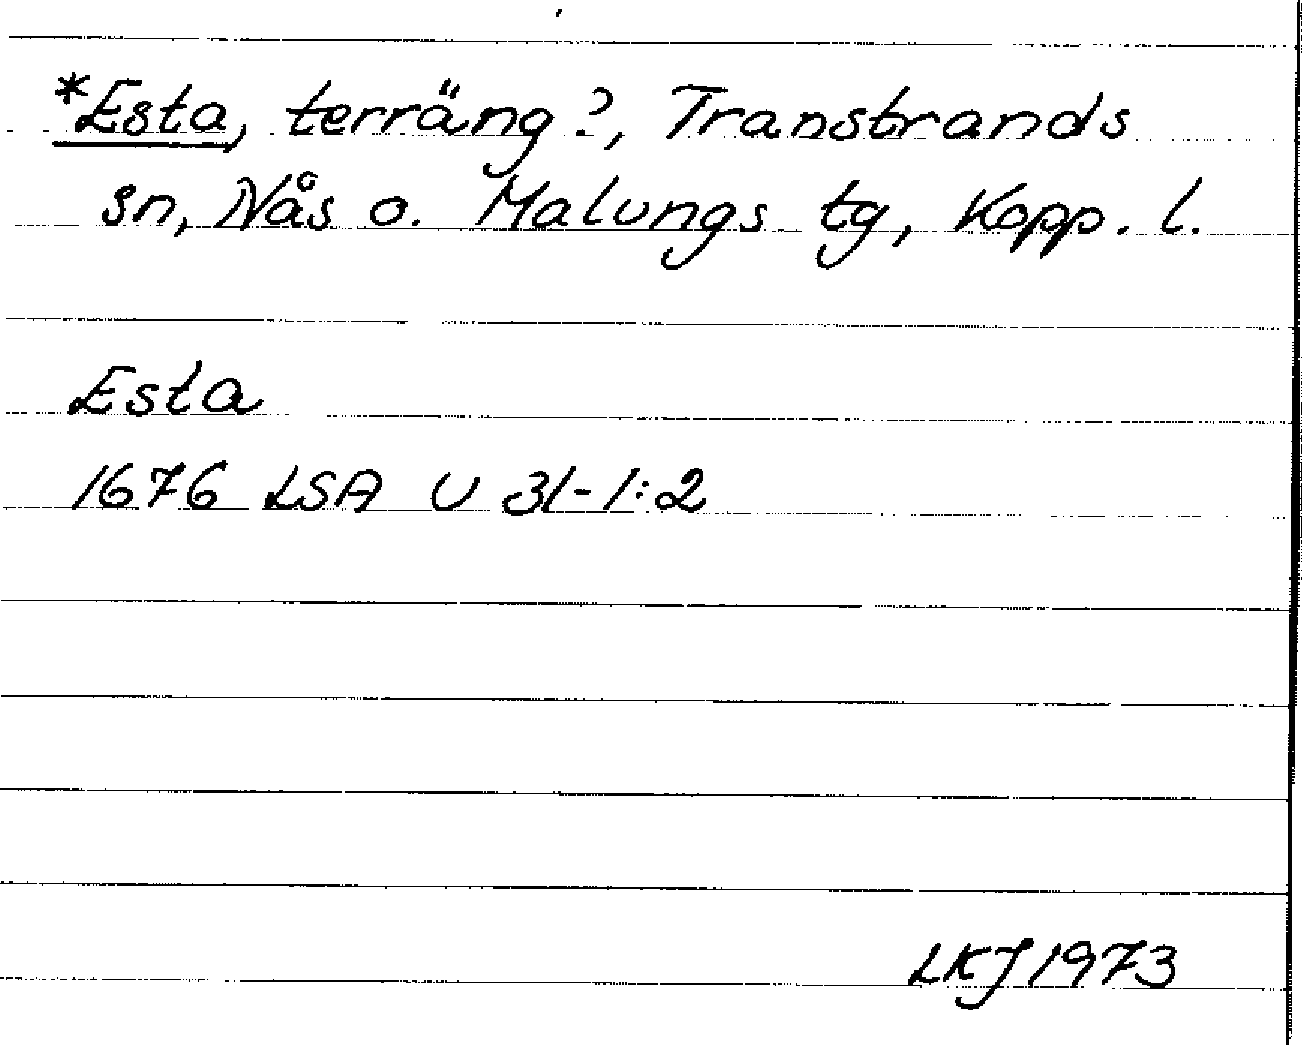 *Esta, terräng?, Transtrands
sn, Nås o. Malungs tg, Kopp. l.
Esta
1676 LSA U 31-1:2
LKJ 1973